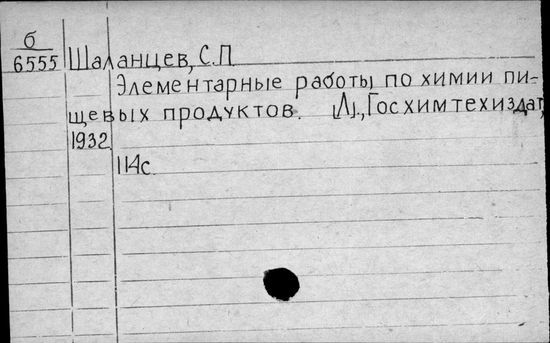 б
6555 Шаланцев, С.П.
Элементарные работы по химии пи-
щевых продуктов. [Л]., Госхимтехиздат,
1932
114с.